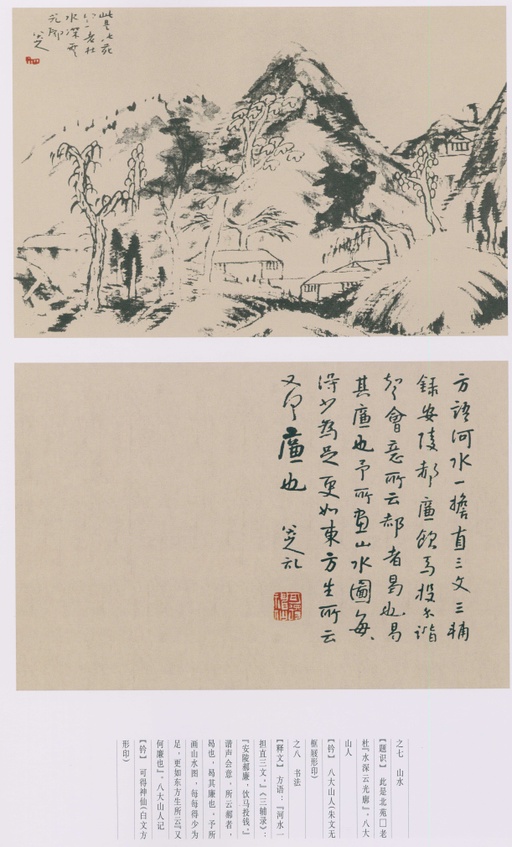 此是北苑
老杜
水深雲
光廊
八大
方語河水一擔直三文三輔
錄安陵郝廉飲馬投錢諧
聲會意所云郝者曷也曷
其廉也予所畫山水圖每每
得少為足更如東方生所云
又何廉也 八大山人記
可得神仙
之七 山水
【题识】 此是北苑□老
杜『水深云光廊』。八大
山人
【钤】 八大山人（朱文无
框屐形印）
之八 书法
【释文】 方语：『河水一
担直三文。』《三辅录》：
『安陵郝廉，饮马投钱。』
谐声会意，所云郝者，
曷也，曷其廉也。予所
画山水图，每每得少为
足，更如东方生所云『又
何廉也』。八大山人记
【钤】 可得神仙（白文方
形印）